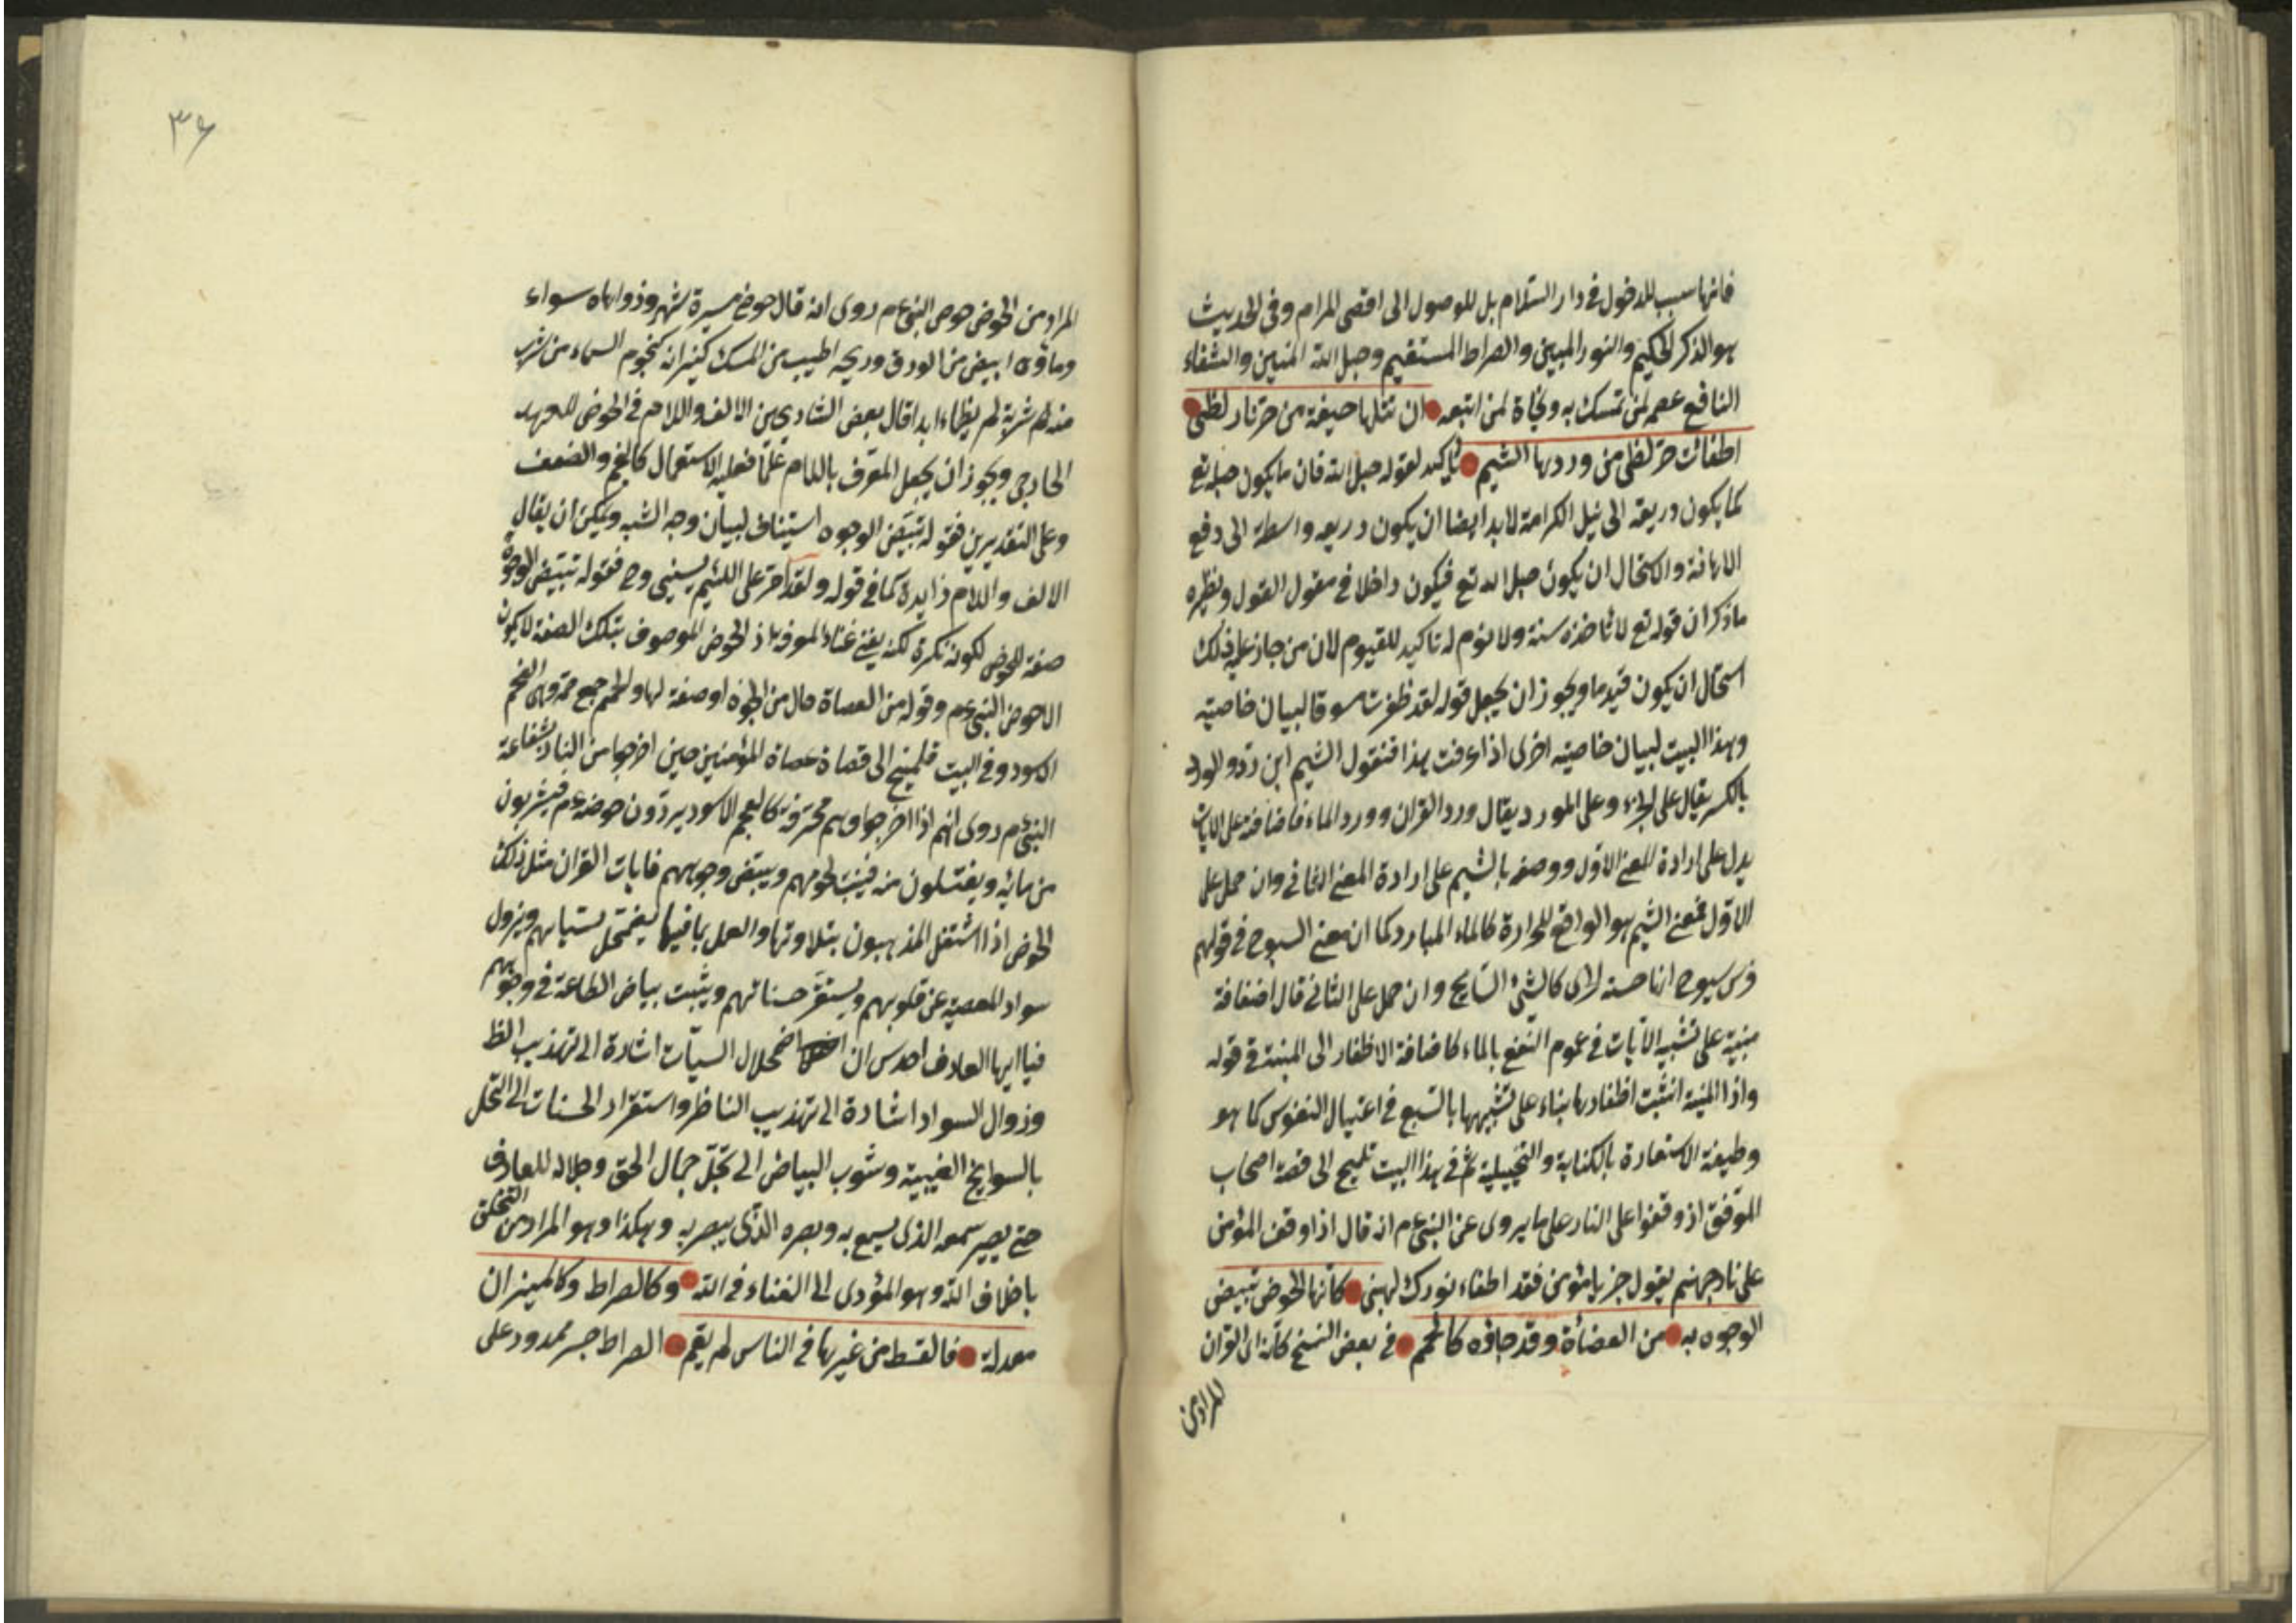 فانها سبب للدخول في دار السلام بل للوصول الى اقصى المرام وفي الحديث
هو الذكر الحكيم والنور المبين والصراط المستقيم وحبل الله المتين والشفاء
النافع عصمه لمن تمسك به ونجاة لمن اتبعه ان تتلها خيفة من حر نار لظى
اطفات حر لظى من وردها الشبم تاكيد لقوله حبل الله فان ما يكون حبله تع
كما يكون ذريعه الى نيل الكرامة لابد ايضا ان يكون ذريعه واسطة الى دفع
الاهانة والاستحال ان يكون حبل الله تع فيكون داخلا في مقول القول ونظيره
ما ذكر ان قوله تع لا تاخذه سنة ولا نوم له تاكيد للقيوم لان من جاز عليه ذلك
استحال ان يكون قيوما ويجوز ان يجعل قوله لقد ظفرت مسوقا لبيان خاصيته
وهذا البيت لبيان خاصيته اخرى اذا عرفت هذا فنقول الشبم ابن دو والورد
بالكسر يقال على الجزء وعلى المورد يقال ورد القران وورد الماء فاضافته على الايات
يدل على ارادة المعنى الاول ووصفه بالشبم على ارادة المعنى الثاني وان حمل على
الاول فمعنى الشبم هو الدافع للحرارة كالماء البارد كما ان معنى السبوح في قولهم
فرس سبوح انها حسنة الجري كالشئ السابح وان حمل على الثاني قال اضافة
مبنية على تشبيه الآيات في عموم النفع بالماء كاضافة الاظفار الى المنية في قوله
واذا المنية انشبت اظفارها بناء على تشبيهها بالسبع في اغتيال النفوس كما هو
وظيفة الاستعارة بالكناية والتخييلية ثم في هذا البيت تلميح الى قصة اصحاب
الموقف اذ وقفوا على النار على ما يروى عن النبي عم انه قال اذا وقف المؤمن
على نار جهنم يقول جز يا مؤمن فقد اطفاء نورك لهبي كانها الحوض تبيض
الوجوه به من العصاة وقد جاؤه كالحمم في بعض النسخ كانه اى القران
المراد من
٣٤
المراد من الحوض حوض النبي عم روى انه قال حوضي مسيرة شهر وزواياه سواء
وماؤه ابيض من الورق وريحه اطيب من المسك كيزانه كنجوم السماء من شرب
منه شربة لم يظماء ابدا قال بعض الشارحين الالف واللام في الحوض للعهد
الخارجي ويجوز ان يجعل المعرف باللام علما فعليه الاستعمال كالنجم والصعق
وعلى التقديرين فقوله تبيض الوجوه استيناف لبيان وجه الشبه ويمكن ان يقال
الالف واللام زايدة كما في قوله ولقد امر على اللئيم يسبني وح فقوله تبيض الوجوه
صفة للحوض لكونه نكرة لكنه يغني غناء المعرفة اذ الحوض الموصوف بتلك الصفة لا يكون
الا حوض النبي عم وقوله من العصاة حال من الوجوه او صفة لها والحمم جمع حممة وهي الفحم
الاسود وفي البيت تلميح الى قصاة عصاة المؤمنين حين اخرجوا من النار بشفاعة
النبي عم روى انهم اذا اخرجوا وهم محترقة كالفحم الاسود يردون حوضه عم فيشربون
من مائه ويغتسلون منه فينبت لحومهم ويبيض وجوههم فايات القران مثل ذلك
الحوض اذا اشتغل المذنبون بتلاوتها والعمل بما فيها يضمحل سيئاتهم ويزول
سواد المعصية عن قلوبهم ويستقر حسناتهم ويثبت بياض الطاعة في وجوههم
فيا ايها العارف احدس ان اضمحلال السيآت اشارة الى تهذيب الظ
وزوال السواد اشارة الى تهذيب الناظر واستقرار الحسنات الى التحلي
بالسوانح الغيبية وشوب البياض الى تجلي جمال الحق وجلاله للعارف
حتى يصير سمعه الذي يسمع به وبصره الذي يبصر به وهكذا وهو المراد من التخلق
باخلاق الله وهو المؤدى الى الفناء في الله وكالصراط وكالميزان
معدلة فالقسط من غيرها في الناس لم يقم الصراط جسر ممدود على